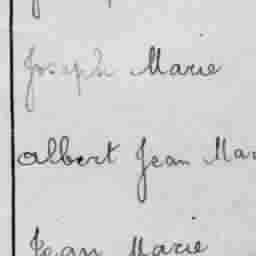 Joseph Marie
Albert Jean Mar
Jean Marie